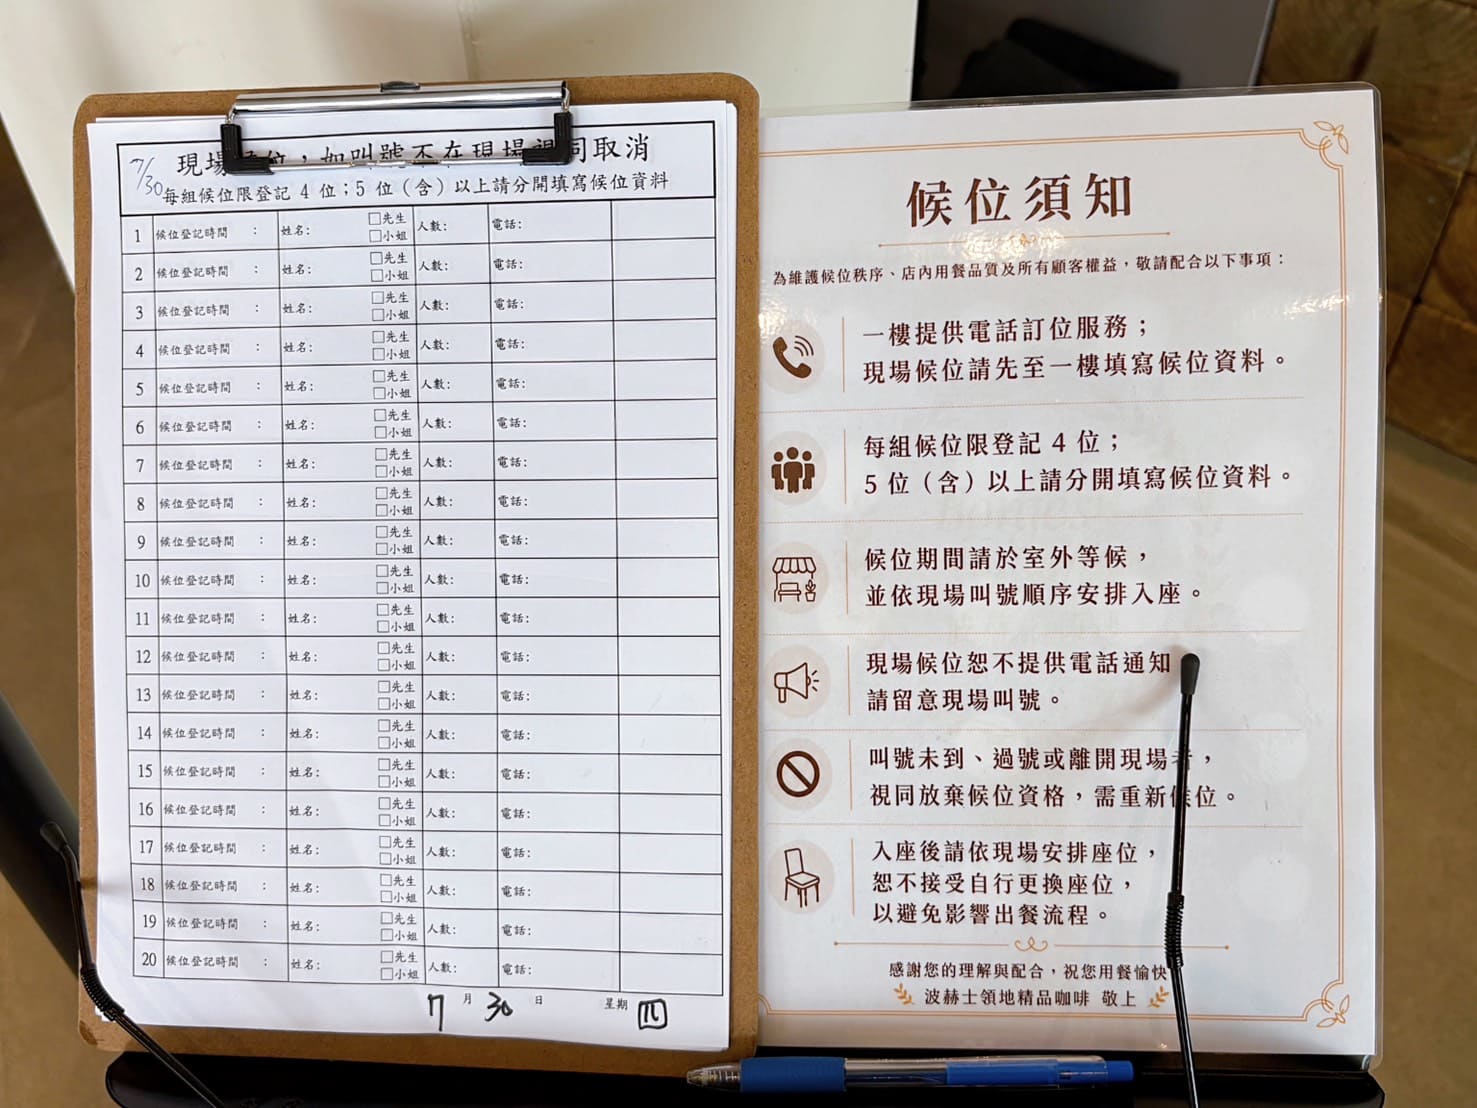 7/30
現場候位，如叫號不在現場視同取消
每組候位限登記 4 位；5 位（含）以上請分開填寫候位資料
1 候位登記時間 : 姓名: □先生 □小姐 人數: 電話:
2 候位登記時間 : 姓名: □先生 □小姐 人數: 電話:
3 候位登記時間 : 姓名: □先生 □小姐 人數: 電話:
4 候位登記時間 : 姓名: □先生 □小姐 人數: 電話:
5 候位登記時間 : 姓名: □先生 □小姐 人數: 電話:
6 候位登記時間 : 姓名: □先生 □小姐 人數: 電話:
7 候位登記時間 : 姓名: □先生 □小姐 人數: 電話:
8 候位登記時間 : 姓名: □先生 □小姐 人數: 電話:
9 候位登記時間 : 姓名: □先生 □小姐 人數: 電話:
10 候位登記時間 : 姓名: □先生 □小姐 人數: 電話:
11 候位登記時間 : 姓名: □先生 □小姐 人數: 電話:
12 候位登記時間 : 姓名: □先生 □小姐 人數: 電話:
13 候位登記時間 : 姓名: □先生 □小姐 人數: 電話:
14 候位登記時間 : 姓名: □先生 □小姐 人數: 電話:
15 候位登記時間 : 姓名: □先生 □小姐 人數: 電話:
16 候位登記時間 : 姓名: □先生 □小姐 人數: 電話:
17 候位登記時間 : 姓名: □先生 □小姐 人數: 電話:
18 候位登記時間 : 姓名: □先生 □小姐 人數: 電話:
19 候位登記時間 : 姓名: □先生 □小姐 人數: 電話:
20 候位登記時間 : 姓名: □先生 □小姐 人數: 電話:
7 月 30 日 星期 四
候位須知
為維護候位秩序、店內用餐品質及所有顧客權益，敬請配合以下事項：
一樓提供電話訂位服務；
現場候位請先至一樓填寫候位資料。
每組候位限登記 4 位；
5 位（含）以上請分開填寫候位資料。
候位期間請於室外等候，
並依現場叫號順序安排入座。
現場候位恕不提供電話通知
請留意現場叫號。
叫號未到、過號或離開現場者，
視同放棄候位資格，需重新候位。
入座後請依現場安排座位，
恕不接受自行更換座位，
以避免影響出餐流程。
感謝您的理解與配合，祝您用餐愉快
波赫士領地精品咖啡 敬上